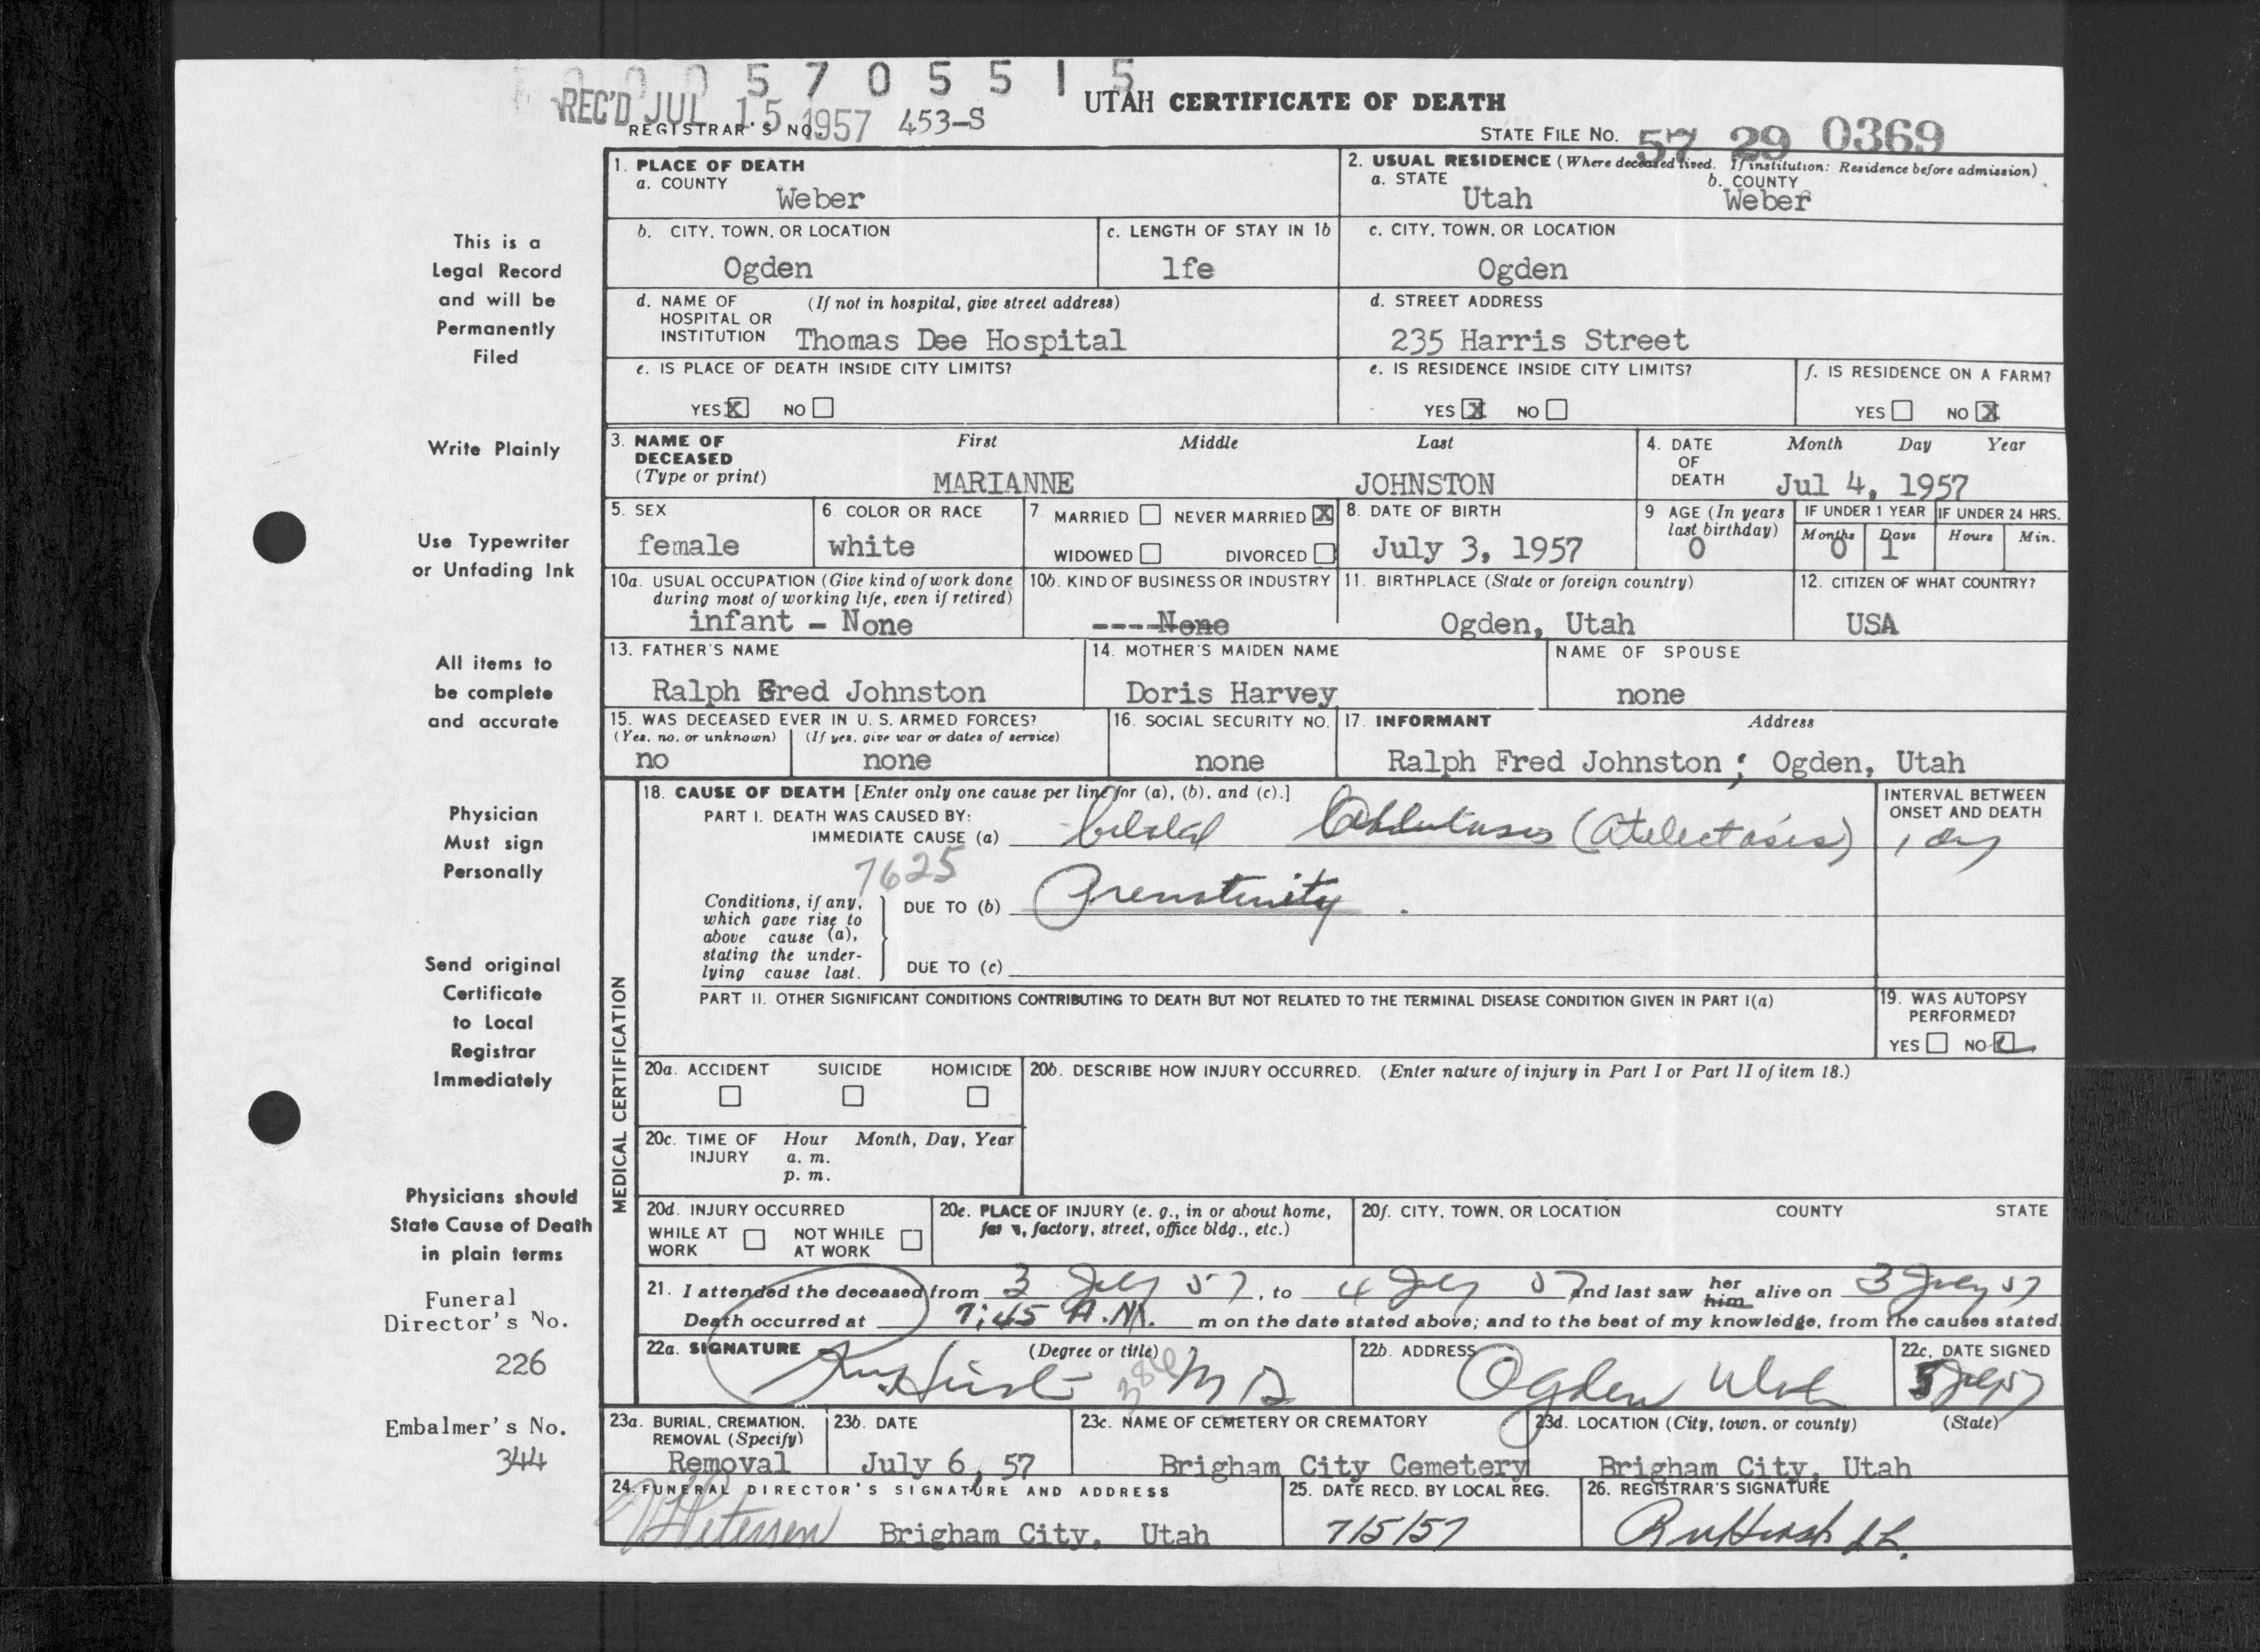 5 7 0 5 5 1 5
REC'D JUL 15 1957
REGISTRAR'S NO. 453-S
UTAH CERTIFICATE OF DEATH
STATE FILE NO. 57 29 0369
This is a
Legal Record
and will be
Permanently
Filed
Write Plainly
Use Typewriter
or Unfading Ink
All items to
be complete
and accurate
Physician
Must sign
Personally
Send original
Certificate
to Local
Registrar
Immediately
Physicians should
State Cause of Death
in plain terms
Funeral
Director's No.
226
Embalmer's No.
344
1. PLACE OF DEATH
a. COUNTY
Weber
2. USUAL RESIDENCE (Where deceased lived. If institution: Residence before admission)
a. STATE b. COUNTY
Utah Weber
b. CITY, TOWN, OR LOCATION
Ogden
c. LENGTH OF STAY IN 1b
lfe
c. CITY, TOWN, OR LOCATION
Ogden
d. NAME OF (If not in hospital, give street address)
HOSPITAL OR
INSTITUTION Thomas Dee Hospital
d. STREET ADDRESS
235 Harris Street
e. IS PLACE OF DEATH INSIDE CITY LIMITS?
YES X NO
e. IS RESIDENCE INSIDE CITY LIMITS?
YES X NO
f. IS RESIDENCE ON A FARM?
YES NO X
3. NAME OF First Middle Last
DECEASED
(Type or print) MARIANNE JOHNSTON
4. DATE Month Day Year
OF
DEATH Jul 4, 1957
5. SEX
female
6. COLOR OR RACE
white
7. MARRIED NEVER MARRIED X
WIDOWED DIVORCED
8. DATE OF BIRTH
July 3, 1957
9 AGE (In years
last birthday)
0
IF UNDER 1 YEAR
Months Days
0 1
IF UNDER 24 HRS.
Hours Min.
10a. USUAL OCCUPATION (Give kind of work done
during most of working life, even if retired)
infant - None
10b. KIND OF BUSINESS OR INDUSTRY
----None
11. BIRTHPLACE (State or foreign country)
Ogden, Utah
12. CITIZEN OF WHAT COUNTRY?
USA
13. FATHER'S NAME
Ralph Fred Johnston
14. MOTHER'S MAIDEN NAME
Doris Harvey
NAME OF SPOUSE
none
15. WAS DECEASED EVER IN U. S. ARMED FORCES?
(Yes, no, or unknown) (If yes, give war or dates of service)
no none
16. SOCIAL SECURITY NO.
none
17. INFORMANT Address
Ralph Fred Johnston; Ogden, Utah
MEDICAL CERTIFICATION
18. CAUSE OF DEATH [Enter only one cause per line for (a), (b), and (c).]
PART I. DEATH WAS CAUSED BY:
IMMEDIATE CAUSE (a) (atelectasis)
7625
Conditions, if any,
which gave rise to
above cause (a),
stating the under-
lying cause last.
DUE TO (b) Prematurity
DUE TO (c)
INTERVAL BETWEEN
ONSET AND DEATH
1 day
PART II. OTHER SIGNIFICANT CONDITIONS CONTRIBUTING TO DEATH BUT NOT RELATED TO THE TERMINAL DISEASE CONDITION GIVEN IN PART I(a)
19. WAS AUTOPSY
PERFORMED?
YES NO
20a. ACCIDENT SUICIDE HOMICIDE
20b. DESCRIBE HOW INJURY OCCURRED. (Enter nature of injury in Part I or Part II of item 18.)
20c. TIME OF Hour Month, Day, Year
INJURY a. m.
p. m.
20d. INJURY OCCURRED
WHILE AT NOT WHILE
WORK AT WORK
20e. PLACE OF INJURY (e. g., in or about home,
farm, factory, street, office bldg., etc.)
20f. CITY, TOWN, OR LOCATION COUNTY STATE
21. I attended the deceased from 3 July 57, to 4 July 57 and last saw her him alive on 3 July 57
Death occurred at 7:45 A.M. m on the date stated above; and to the best of my knowledge, from the causes stated.
22a. SIGNATURE (Degree or title)
386 MD
22b. ADDRESS
Ogden Utah
22c. DATE SIGNED
5 July 57
23a. BURIAL, CREMATION,
REMOVAL (Specify)
Removal
23b. DATE
July 6, 57
23c. NAME OF CEMETERY OR CREMATORY
Brigham City Cemetery
23d. LOCATION (City, town, or county) (State)
Brigham City, Utah
24. FUNERAL DIRECTOR'S SIGNATURE AND ADDRESS
Petersen Brigham City, Utah
25. DATE RECD. BY LOCAL REG.
7/5/57
26. REGISTRAR'S SIGNATURE